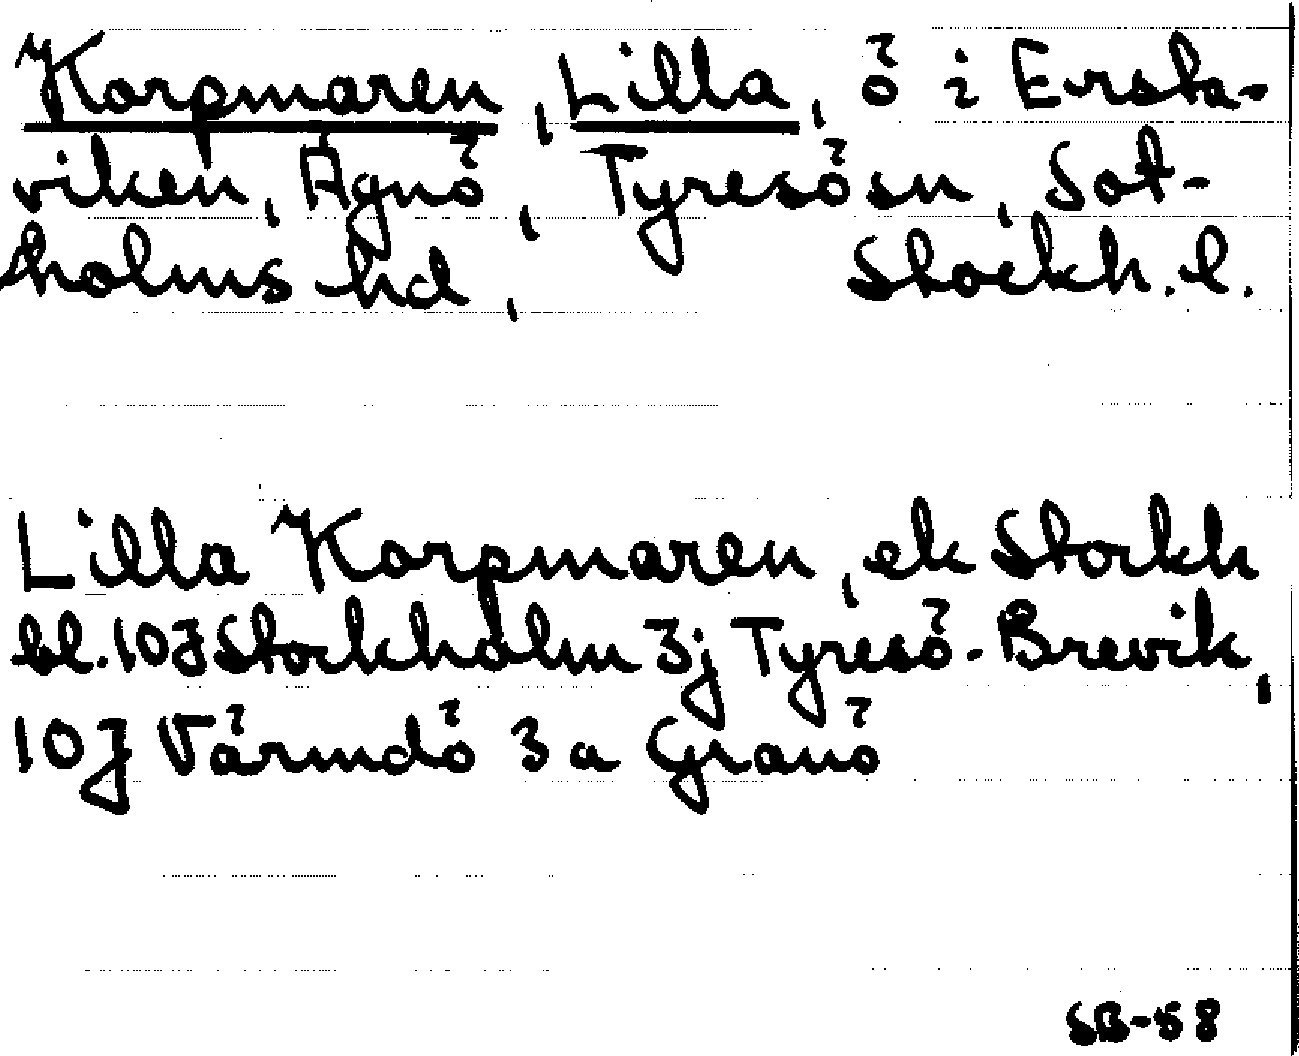 Korpmaren, Lilla, ö i Ersta-
viken, Ägnö, Tyresö sn, Sot-
holms hd, Stockh. l.
Lilla Korpmaren, ek Stockh
bl. 10J Stockholm 3j Tyresö-Brevik,
10J Värmdö 3a Granö
SB-58